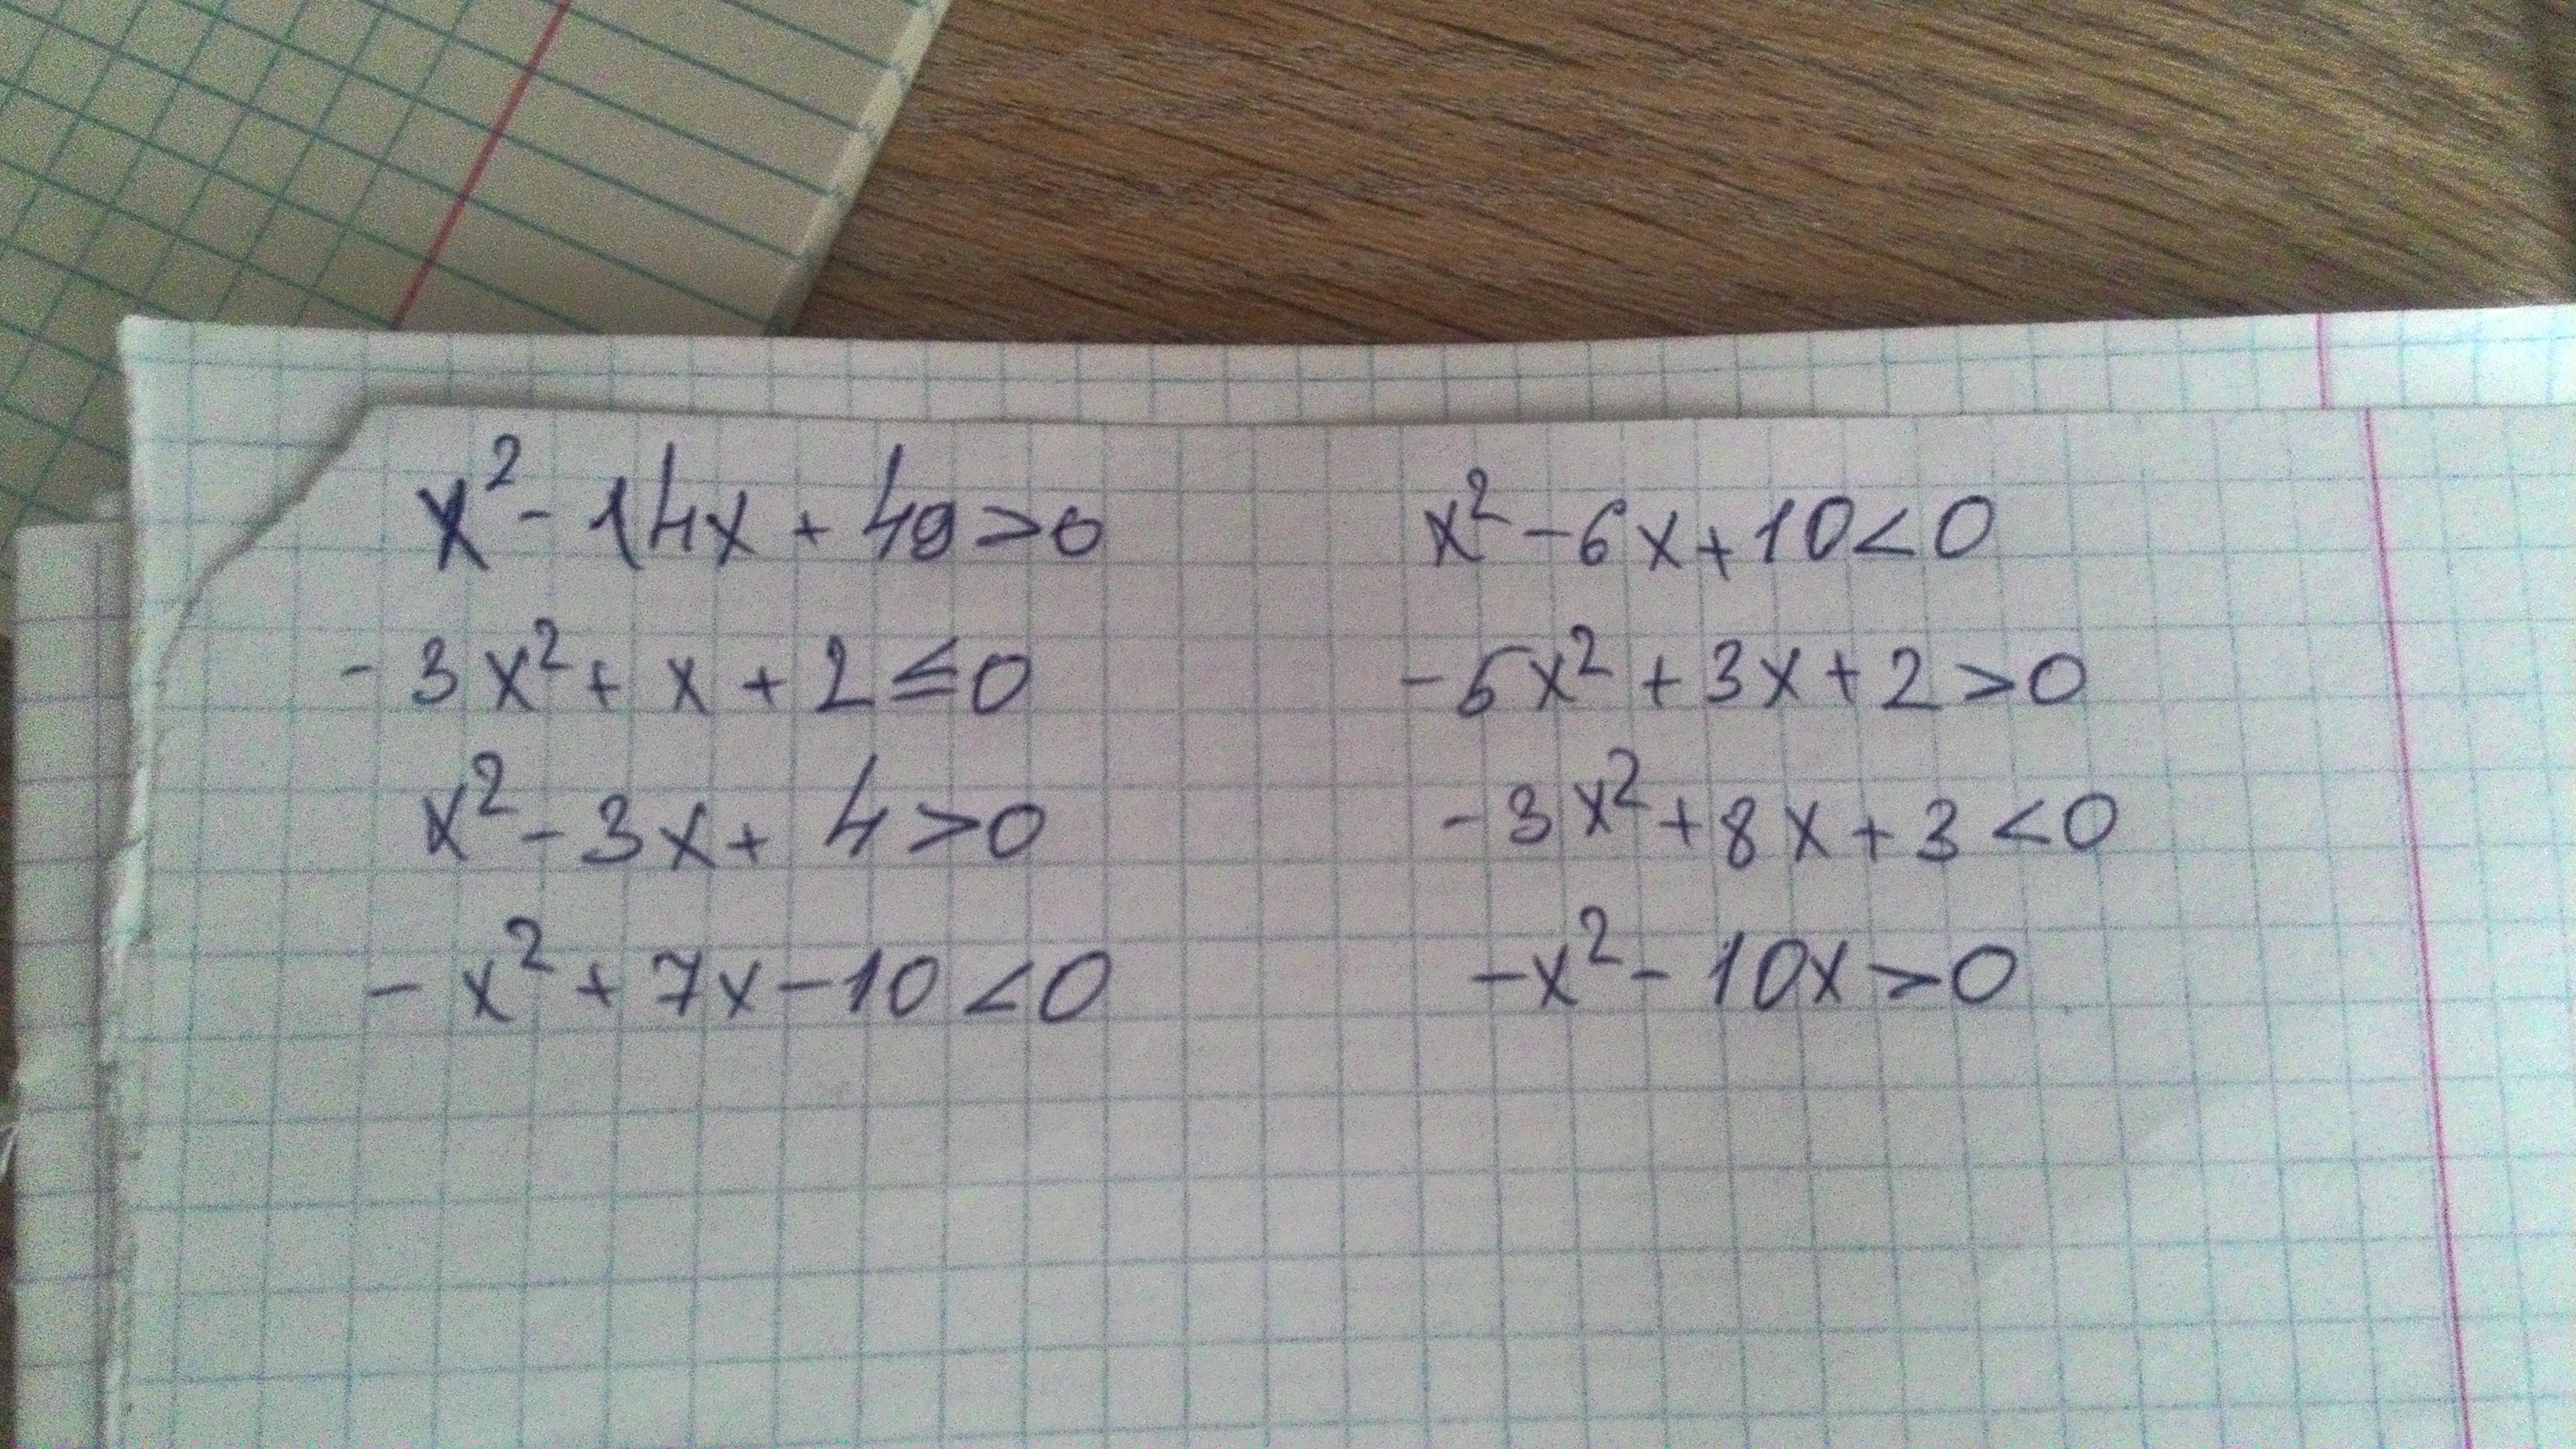 x² - 14x + 49 > 0
- 3x² + x + 2 ≤ 0
x² - 3x + 4 > 0
- x² + 7x - 10 < 0
x² - 6x + 10 < 0
- 5x² + 3x + 2 > 0
- 3x² + 8x + 3 < 0
- x² - 10x > 0